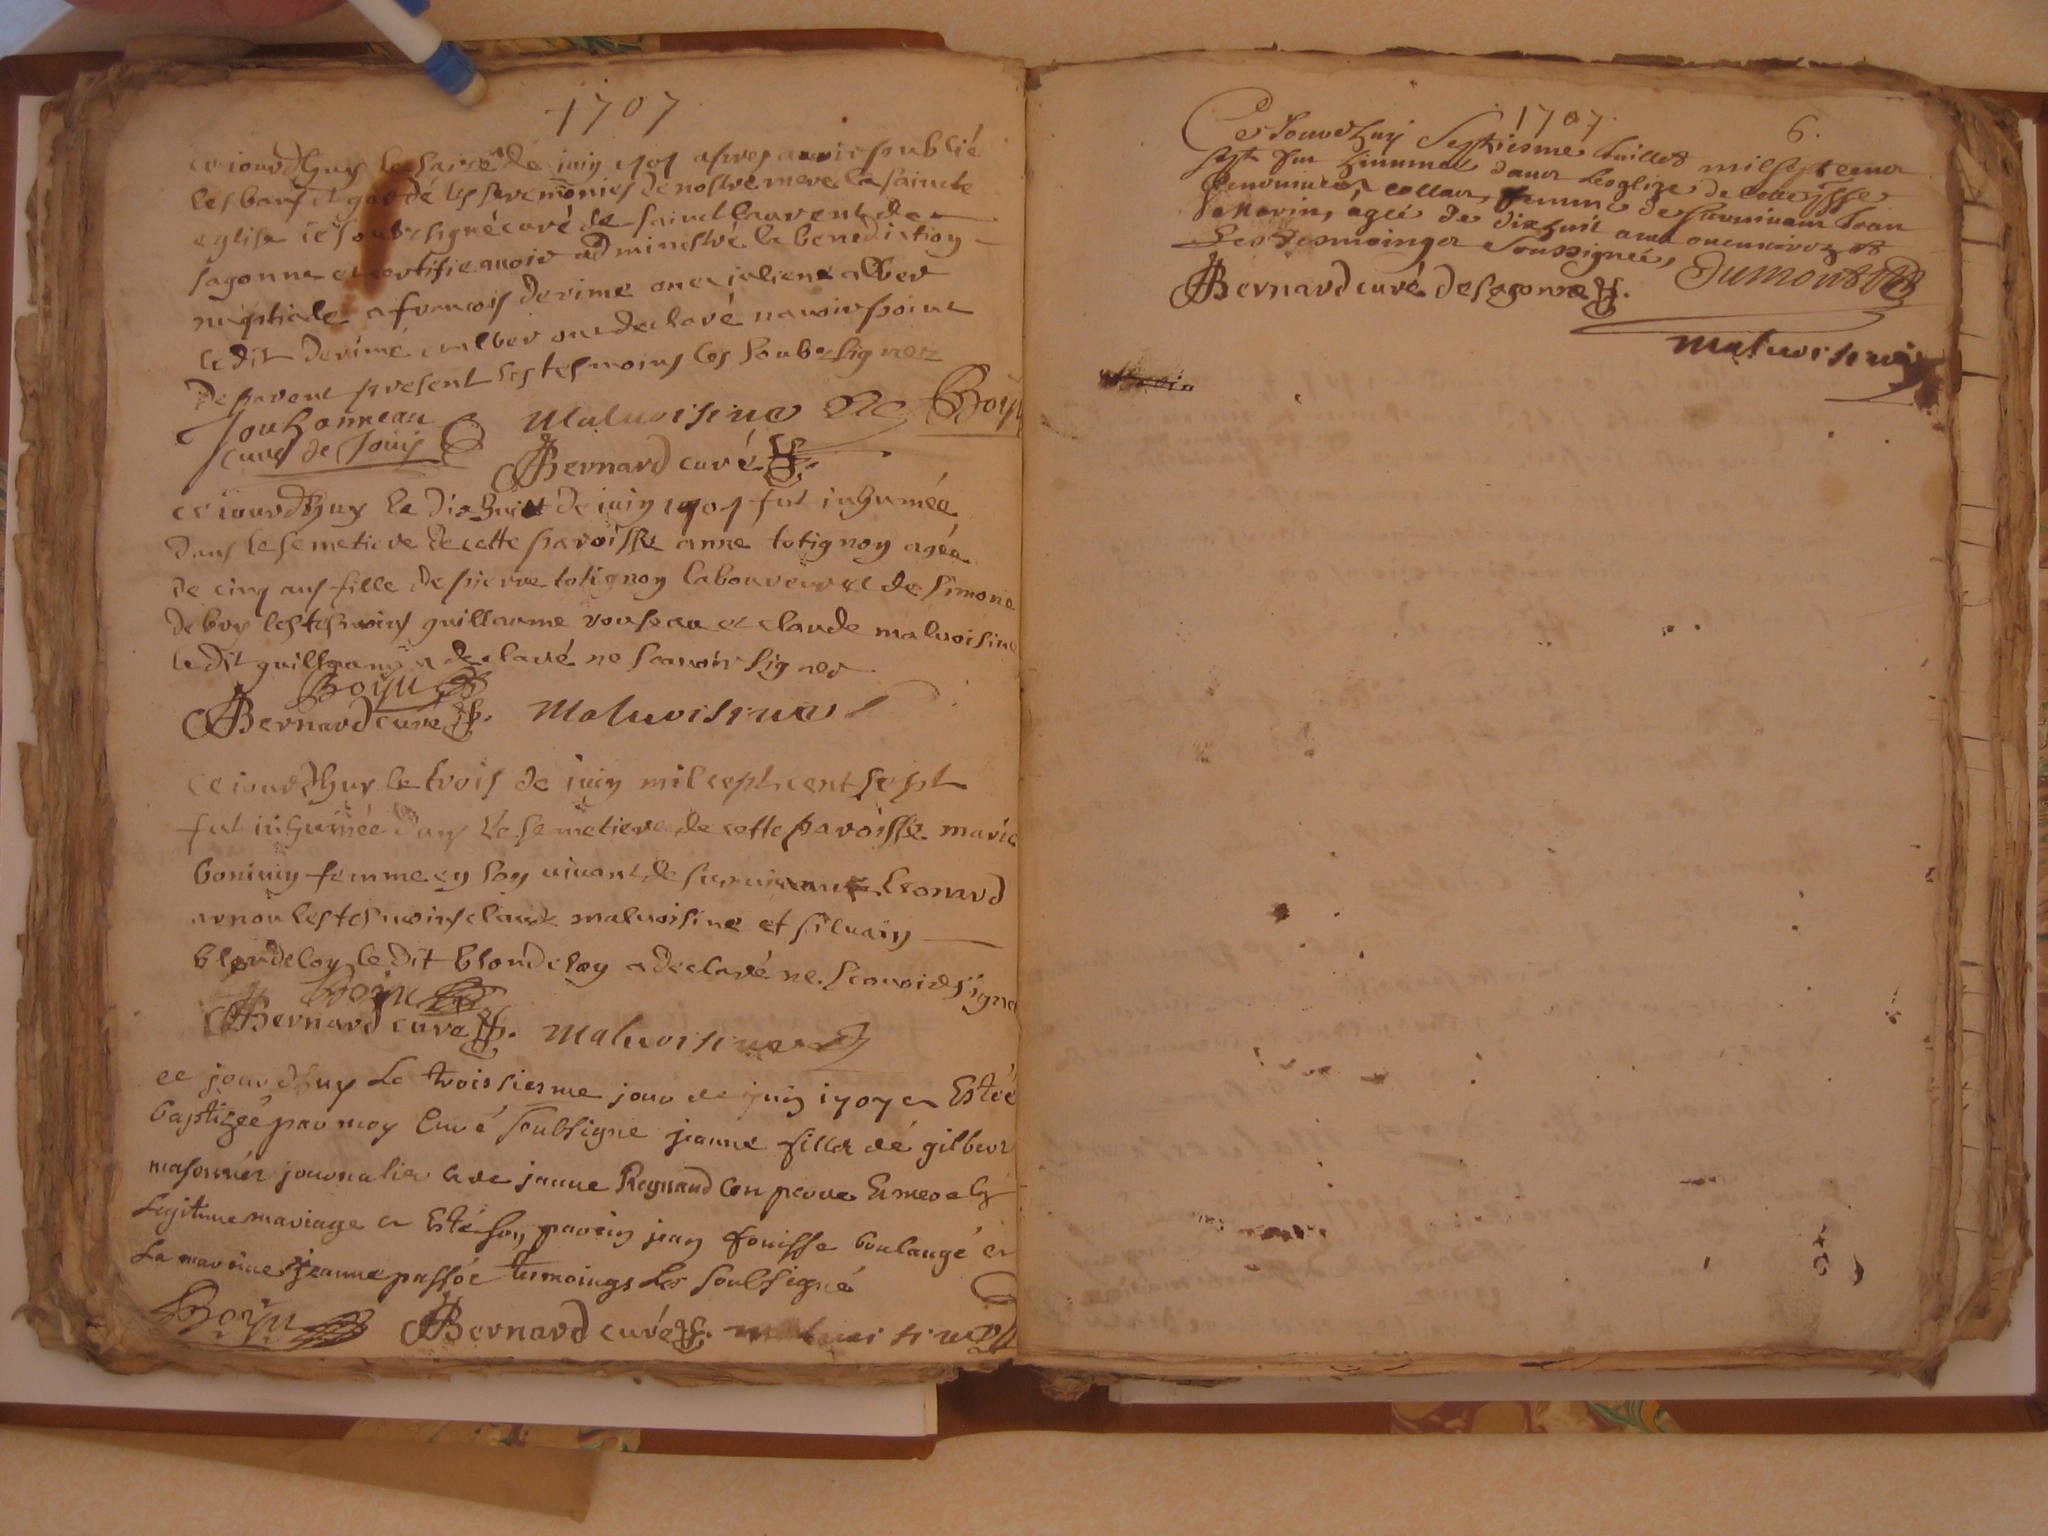 1707
ce iourdhuy le saise de iuin 1707 apres auoir publié
les bans et gardé les seremonies de nostre mere la saincte
eglise ie soubsigné curé de sainct laurent de
sagonne certifie auoir administré la benediction
nuptiale a francois derime et a iuliene alber
le dit derimé et alber ont declaré n auoir point
de parent present les tesmoins les soubsignez
Jouhanneau
curé de Jouis
Maluoisine
Boyn
Bernard curé
ce iourdhuy le dixhuit de iuin 1707 fut inhumée
dans le semetiere de cette paroisse anne totignon agée
de cinq ans fille de pierre totignon laboureur et de simone
debor les tesmoins guillaume rouseau et claude maluoisine
le dit guillaume a declaré ne scauoir signer
Boyn
Bernard curé Maluoisine
ce iourdhuy le trois de iuin mil sept cent sept
fut inhumée dans le semetiere de cette paroisse marie
bonniny femme en son uiuant de Leonard
arnou les tesmoins claude maluoisine et siluain
blondeloy le dit blondeloy a declaré ne scauoir signer
Boyn
Bernard curé Maluoisine
ce jourdhuy Le troissiesme jour de juin 1707 a Esté
baptizée par moy Curé soubsigne jeanne fille de gilber
masonnier journalier et de jeanne Regnaud
Legitime mariage a Esté son parein jean fouisse boulangé et
La mareine jeanne passée tesmoings Les soubsigné
Boyn Bernard curé maluoisine
1707. 6.
Ce Jourdhuy Septiesme Juillet mil sept cent
sept fut Leglize de
collas, femme de
agée de dixhuit ans
Les tesmoinger soussignées, Dumont
Bernard curé de sagonne
Maluoisine